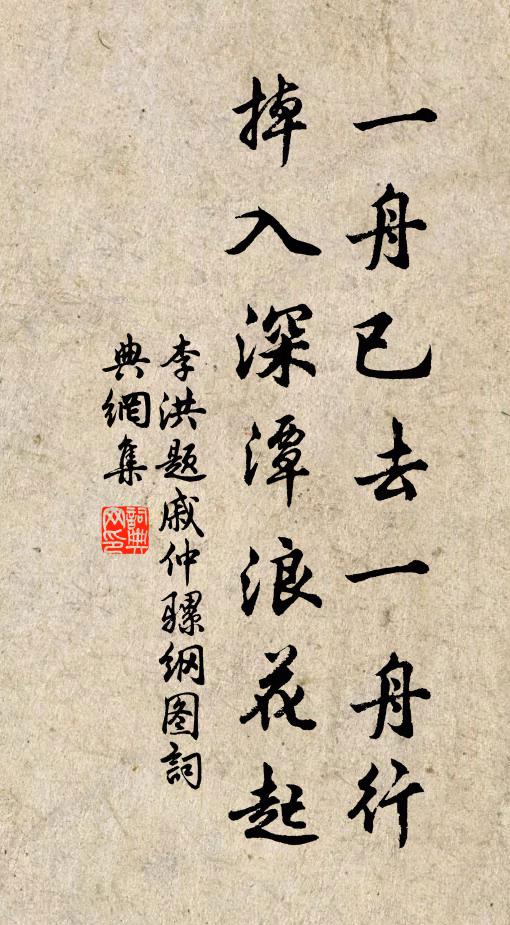 一舟已去一舟行
掉入深潭浪花起
李洪题戚仲骡纲图詞
典網集
詞典網印